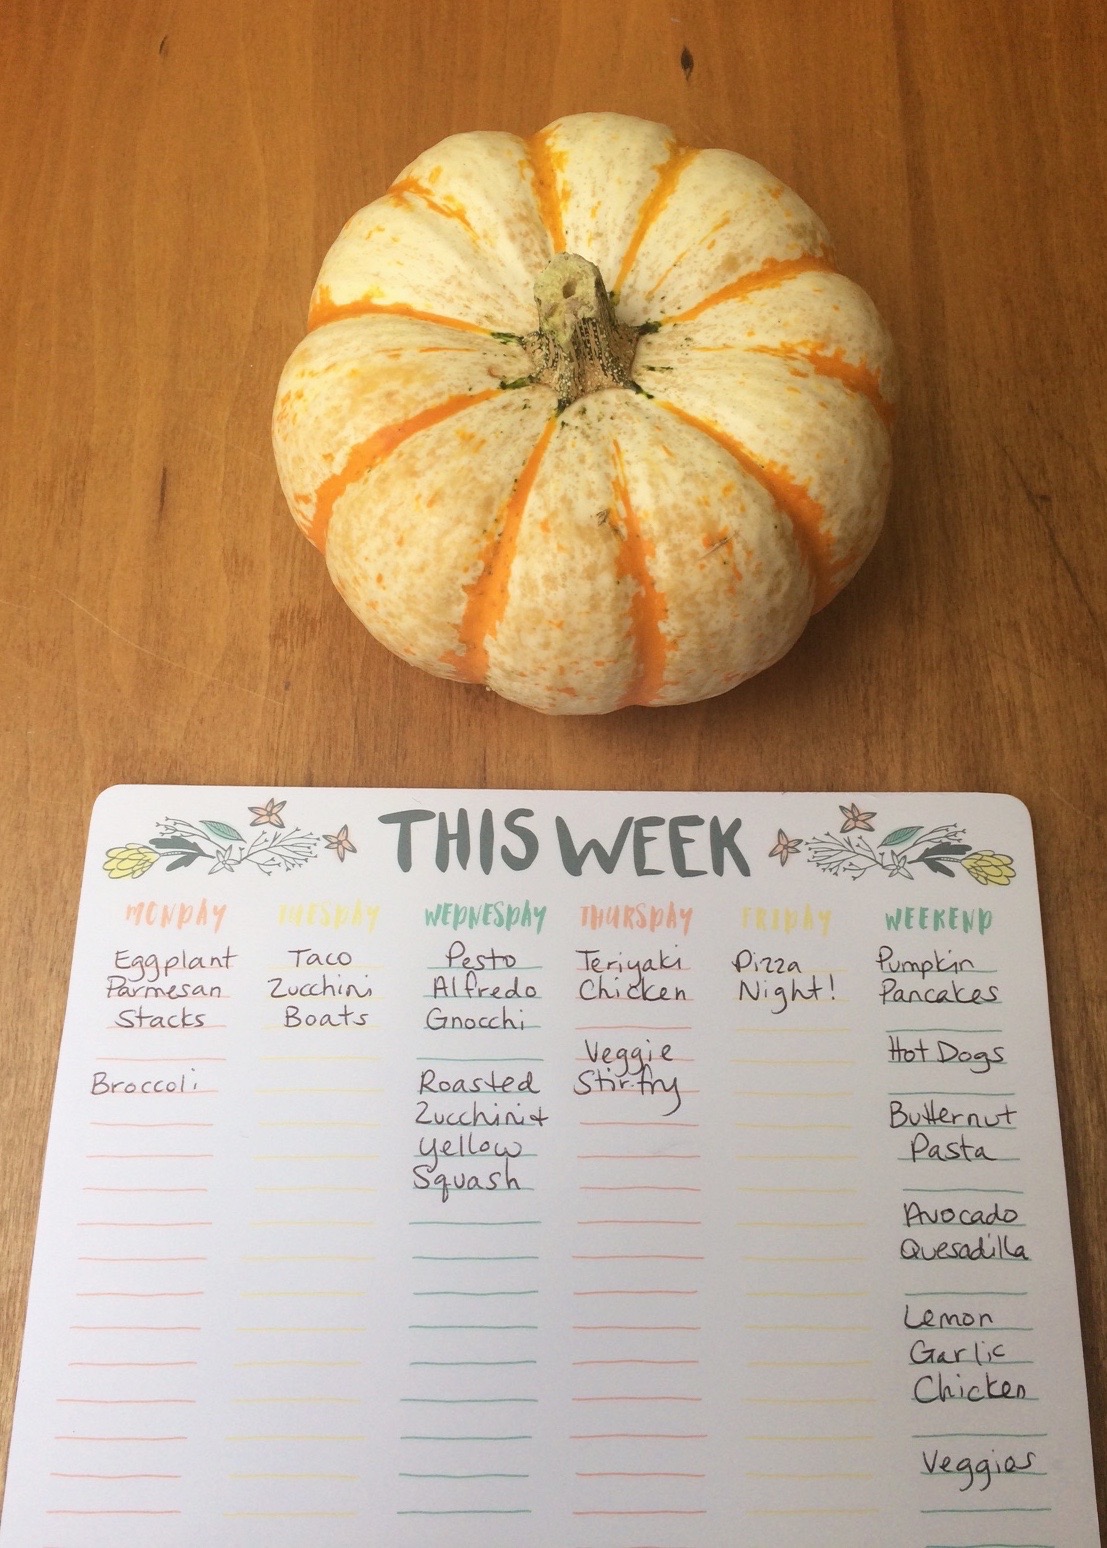 THIS WEEK
MONDAY
Eggplant
Parmesan
Stacks
Broccoli
TUESDAY
Taco
Zucchini
Boats
WEDNESDAY
Pesto
Alfredo
Gnocchi
Roasted
Zucchini +
Yellow
Squash
THURSDAY
Teriyaki
Chicken
Veggie
Stir-fry
FRIDAY
Pizza
Night!
WEEKEND
Pumpkin
Pancakes
Hot Dogs
Butternut
Pasta
Avocado
Quesadilla
Lemon
Garlic
Chicken
Veggies